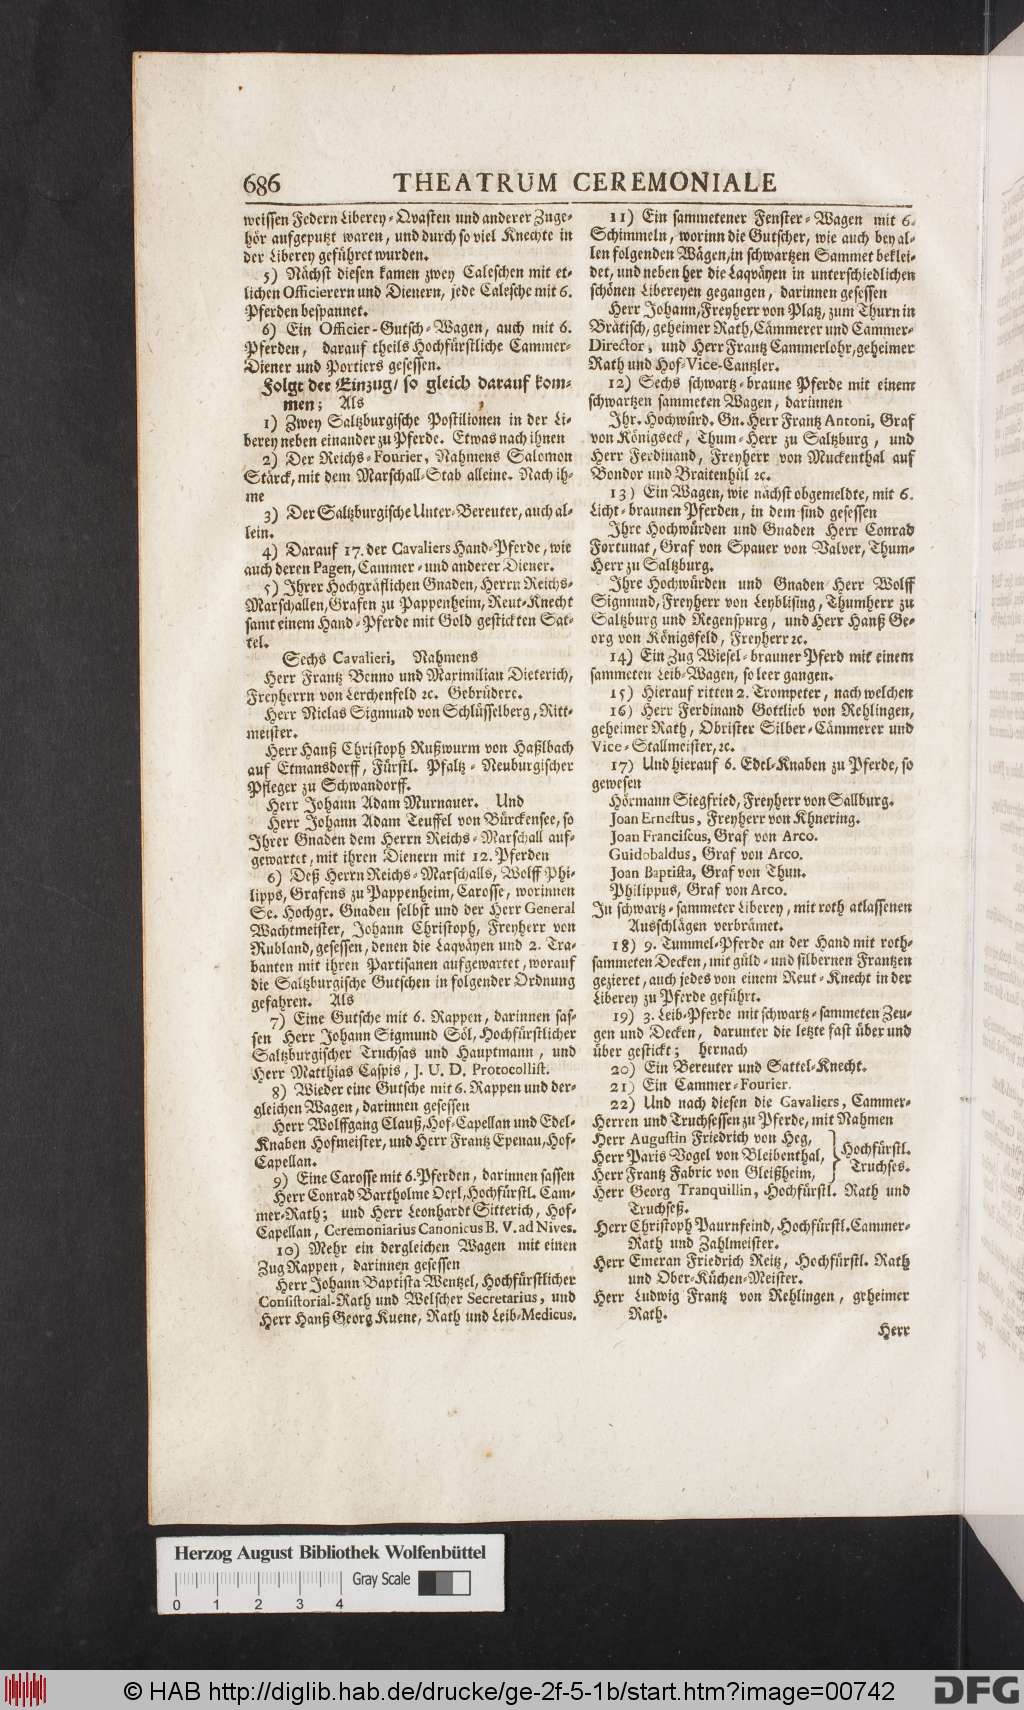 686 THEATRUM CEREMONIALE
weissen Federn Liberey-Qvasten und anderer Zuge-
hör aufgeputzt waren, und durch so viel Knechte in
der Liberey geführet wurden.
5) Nächst diesen kamen zwey Caleschen mit et-
lichen Officierern und Dienern, jede Calesche mit 6.
Pferden bespannet.
6) Ein Officier-Gutsch-Wagen, auch mit 6.
Pferden, darauf theils Hochfürstliche Cammer-
Diener und Portiers gesessen.
Folgt der Einzug/ so gleich darauf kom-
men; Als
1) Zwey Saltzburgische Postilionen in der Li-
berey neben einander zu Pferde. Etwas nach ihnen
2) Der Reichs-Fourier, Nahmens Salomon
Stärck, mit dem Marschall-Stab alleine. Nach ih-
me
3) Der Saltzburgische Unter-Bereuter, auch al-
lein.
4) Darauf 17. der Cavaliers Hand-Pferde, wie
auch deren Pagen, Cammer- und anderer Diener.
5) Ihrer Hochgräflichen Gnaden, Herrn Reichs-
Marschallen, Grafen zu Pappenheim, Reut-Knecht
samt einem Hand-Pferde mit Gold gestickten Sat-
tel.
Sechs Cavalieri, Nahmens
Herr Frantz Benno und Maximilian Dieterich,
Freyherrn von Lerchenfeld ꝛc. Gebrüdere.
Herr Niclas Sigmund von Schlüsselberg, Ritt-
meister.
Herr Hanß Christoph Rußwurm von Haßlbach
auf Etmansdorff, Fürstl. Pfaltz-Neuburgischer
Pfleger zu Schwandorff.
Herr Johann Adam Murnauer. Und
Herr Johann Adam Teuffel von Bürckensee, so
Ihrer Gnaden dem Herrn Reichs-Marschall auf-
gewartet, mit ihren Dienern mit 12. Pferden
6) Deß Herrn Reichs-Marschalls, Wolff Phi-
lipps, Grafens zu Pappenheim, Carosse, worinnen
Se. Hochgr. Gnaden selbst und der Herr General
Wachtmeister, Johann Christoph, Freyherr von
Rubland, gesessen, denen die Laqväyen und 2. Tra-
banten mit ihren Partisanen aufgewartet, worauf
die Saltzburgische Gutschen in folgender Ordnung
gefahren. Als
7) Eine Gutsche mit 6. Rappen, darinnen sas-
sen Herr Johann Sigmund Söl, Hochfürstlicher
Saltzburgischer Truchsas und Hauptmann, und
Herr Matthias Caspis, J. U. D. Protocollist.
8) Wieder eine Gutsche mit 6. Rappen und der-
gleichen Wagen, darinnen gesessen
Herr Wolffgang Clauß, Hof-Capellan und Edel-
Knaben Hofmeister, und Herr Frantz Epenau, Hof-
Capellan.
9) Eine Carosse mit 6. Pferden, darinnen sassen
Herr Conrad Bartholme Dexl, Hochfürstl. Cam-
mer-Rath; und Herr Leonhardt Sitterich, Hof-
Capellan, Ceremoniarius Canonicus B. V. ad Nives.
10) Mehr ein dergleichen Wagen mit einen
Zug Rappen, darinnen gesessen
Herr Johann Baptista Wentzel, Hochfürstlicher
Consistorial-Rath und Welscher Secretarius, und
Herr Hanß Georg Kuene, Rath und Leib-Medicus.
11) Ein sammetener Fenster-Wagen mit 6.
Schimmeln, worinn die Gutscher, wie auch bey al-
len folgenden Wägen, in schwartzen Sammet beklei-
det, und neben her die Laqväyen in unterschiedlichen
schönen Libereyen gegangen, darinnen gesessen
Herr Johann, Freyherr von Platz, zum Thurn in
Brätisch, geheimer Rath, Cämmerer und Cammer-
Director, und Herr Frantz Cammerlohr, geheimer
Rath und Hof-Vice-Cantzler.
12) Sechs schwartz-braune Pferde mit einem
schwartzen sammeten Wagen, darinnen
Ihr. Hochwürd. Gn. Herr Frantz Antoni, Graf
von Königseck, Thum-Herr zu Saltzburg, und
Herr Ferdinand, Freyherr von Muckenthal auf
Bondor und Braitenhül ꝛc.
13) Ein Wagen, wie nächst obgemeldte, mit 6.
Licht-braunen Pferden, in dem sind gesessen
Ihre Hochwürden und Gnaden Herr Conrad
Fortunat, Graf von Spauer von Valver, Thum-
Herr zu Saltzburg.
Ihre Hochwürden und Gnaden Herr Wolff
Sigmund, Freyherr von Leyblifing, Thumherr zu
Saltzburg und Regenspurg, und Herr Hanß Ge-
org von Königsfeld, Freyherr ꝛc.
14) Ein Zug Wiesel-brauner Pferd mit einem
sammeten Leib-Wagen, so leer gangen.
15) Hierauf ritten 2. Trompeter, nach welchen
16) Herr Ferdinand Gottlieb von Rehlingen,
geheimer Rath, Obrister Silber-Cämmerer und
Vice-Stallmeister, ꝛc.
17) Und hierauf 6. Edel-Knaben zu Pferde, so
gewesen
Hörmann Siegfried, Freyherr von Sallburg.
Joan Ernestus, Freyherr von Khnering.
Joan Franciscus, Graf von Arco.
Guidobaldus, Graf von Arco.
Joan Baptista, Graf von Thun.
Philippus, Graf von Arco.
In schwartz-sammeter Liberey, mit roth atlassenen
Ausschlägen verbrämet.
18) 9. Tummel-Pferde an der Hand mit roth-
sammeten Decken, mit güld- und silbernen Frantzen
gezieret, auch jedes von einem Reut-Knecht in der
Liberey zu Pferde geführt.
19) 3. Leib-Pferde mit schwartz-sammeten Zeu-
gen und Decken, darunter die letzte fast über und
über gestickt; hernach
20) Ein Bereuter und Sattel-Knecht.
21) Ein Cammer-Fourier.
22) Und nach diesen die Cavaliers, Cammer-
Herren und Truchsessen zu Pferde, mit Nahmen
Herr Augustin Friedrich von Heg,
Herr Paris Vogel von Bleibenthal,
Herr Frantz Fabric von Gleißheim,
} Hochfürstl.
Truchses.
Herr Georg Tranquillin, Hochfürstl. Rath und
Truchseß.
Herr Christoph Paurnfeind, Hochfürstl. Cammer-
Rath und Zahlmeister.
Herr Emeran Friedrich Reitz, Hochfürstl. Rath
und Ober-Küchen-Meister.
Herr Ludwig Frantz von Rehlingen, geheimer
Rath.
Herr
Herzog August Bibliothek Wolfenbüttel
Gray Scale
0 1 2 3 4
© HAB http://diglib.hab.de/drucke/ge-2f-5-1b/start.htm?image=00742
DFG